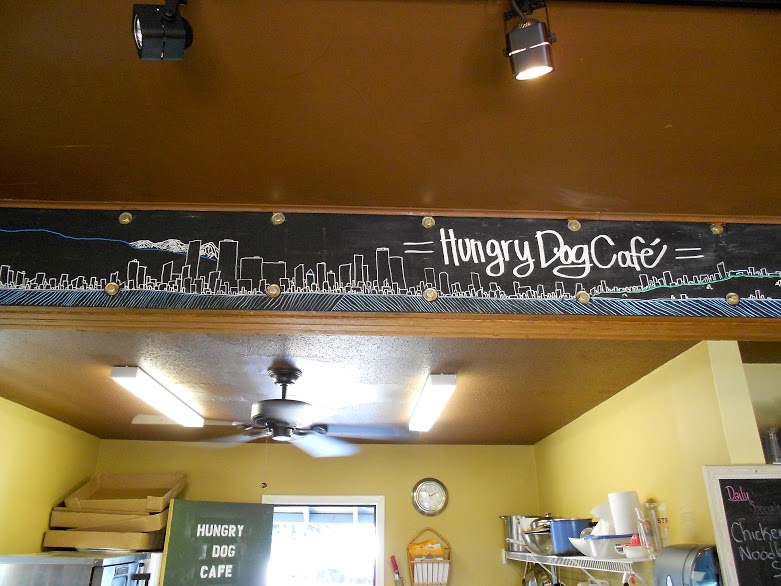 = Hungry Dog Café =
HUNGRY
DOG
CAFE
Daily
Chicken